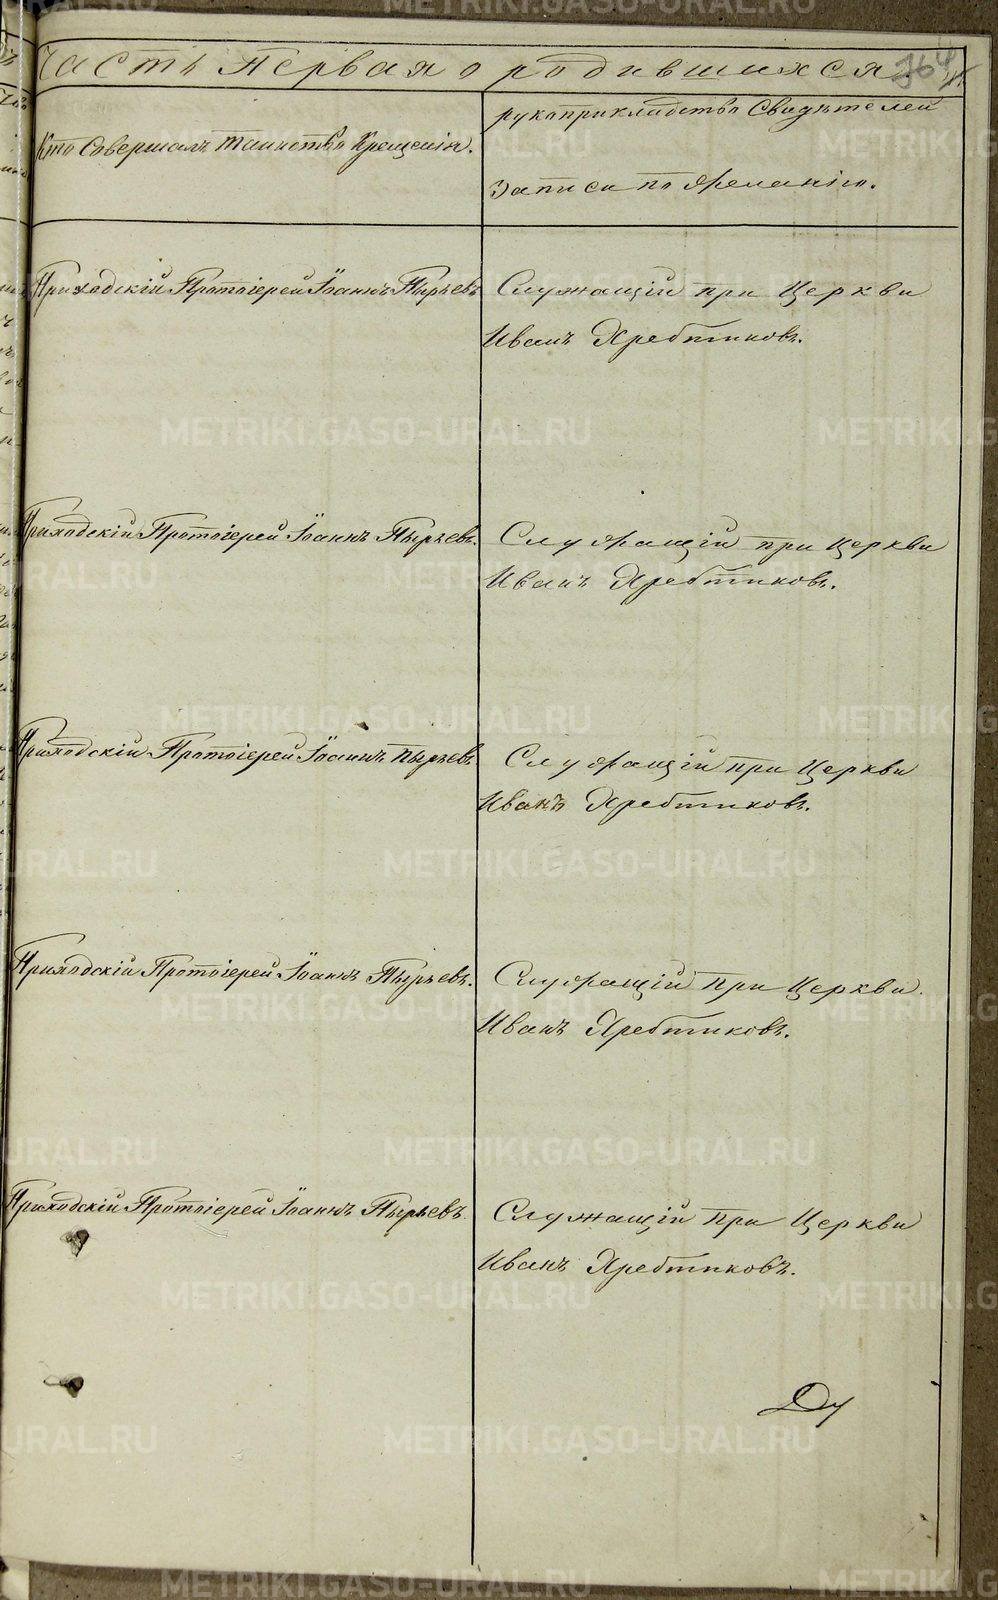 Часть первая о родившихся.
364
Кто Совершалъ таинство Крещенія.
рукоприкладство Свидѣтелей
Записи по желанію.
Приходскій Протоіерей Іоаннъ Пырьевъ
Служащій при Церкви
Иванъ Хребтиковъ.
Приходскій Протоіерей Іоаннъ Пырьевъ.
Служащій при Церкви
Иванъ Хребтиковъ.
Приходскій Протоіерей Іоаннъ Пырьевъ
Служащій при Церкви
Иванъ Хребтиковъ.
Приходскій Протоіерей Іоаннъ Пырьевъ.
Служащій при Церкви.
Иванъ Хребтиковъ.
Приходскій Протоіерей Іоаннъ Пырьевъ.
Служащій при Церкви
Иванъ Хребтиковъ.
METRIKI.GASO-URAL.RU